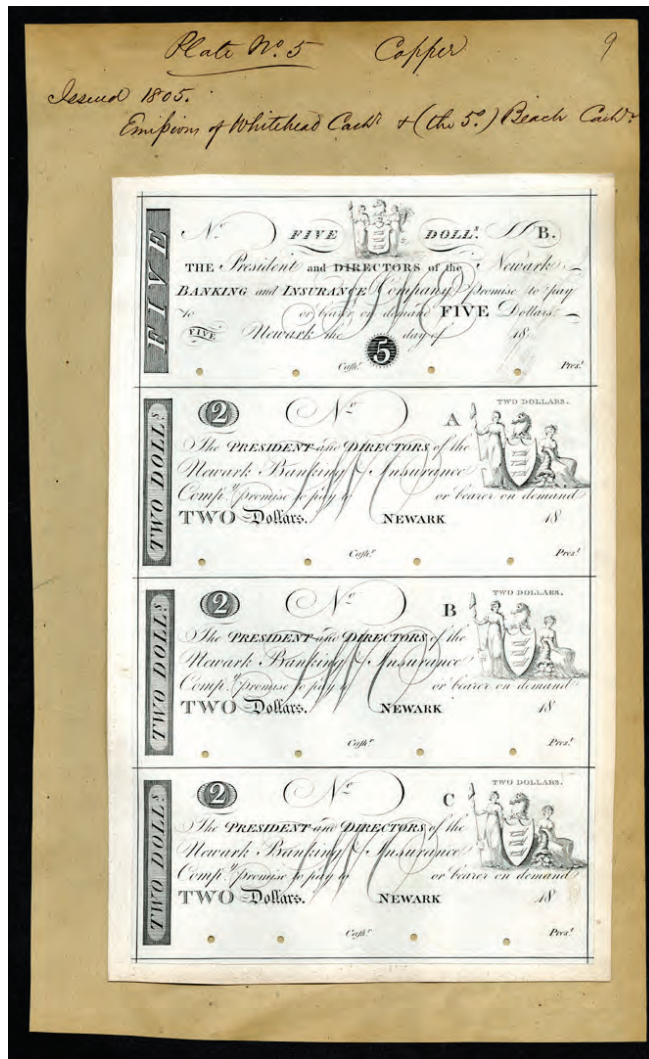 Plate No. 5 Copper 9
Issued 1805.
Emissions of Whitehead Cashr. & (the 5s.) Beach Cashr.
FIVE
No. FIVE DOLLs. B.
THE President and DIRECTORS of the Newark
BANKING and INSURANCE Company promise to pay
to or bearer on demand FIVE Dollars.
FIVE Newark the day of 18
5
Cashr. Prest.
TWO DOLLs.
2 No. A TWO DOLLARS.
The PRESIDENT and DIRECTORS of the
Newark Banking & Insurance
Compy. promise to pay to or bearer on demand
TWO Dollars. NEWARK 18
Cashr. Prest.
TWO DOLLs.
2 No. B TWO DOLLARS.
The PRESIDENT and DIRECTORS of the
Newark Banking & Insurance
Compy. promise to pay to or bearer on demand
TWO Dollars. NEWARK 18
Cashr. Prest.
TWO DOLLs.
2 No. C TWO DOLLARS.
The PRESIDENT and DIRECTORS of the
Newark Banking & Insurance
Compy. promise to pay to or bearer on demand
TWO Dollars. NEWARK 18
Cashr. Prest.